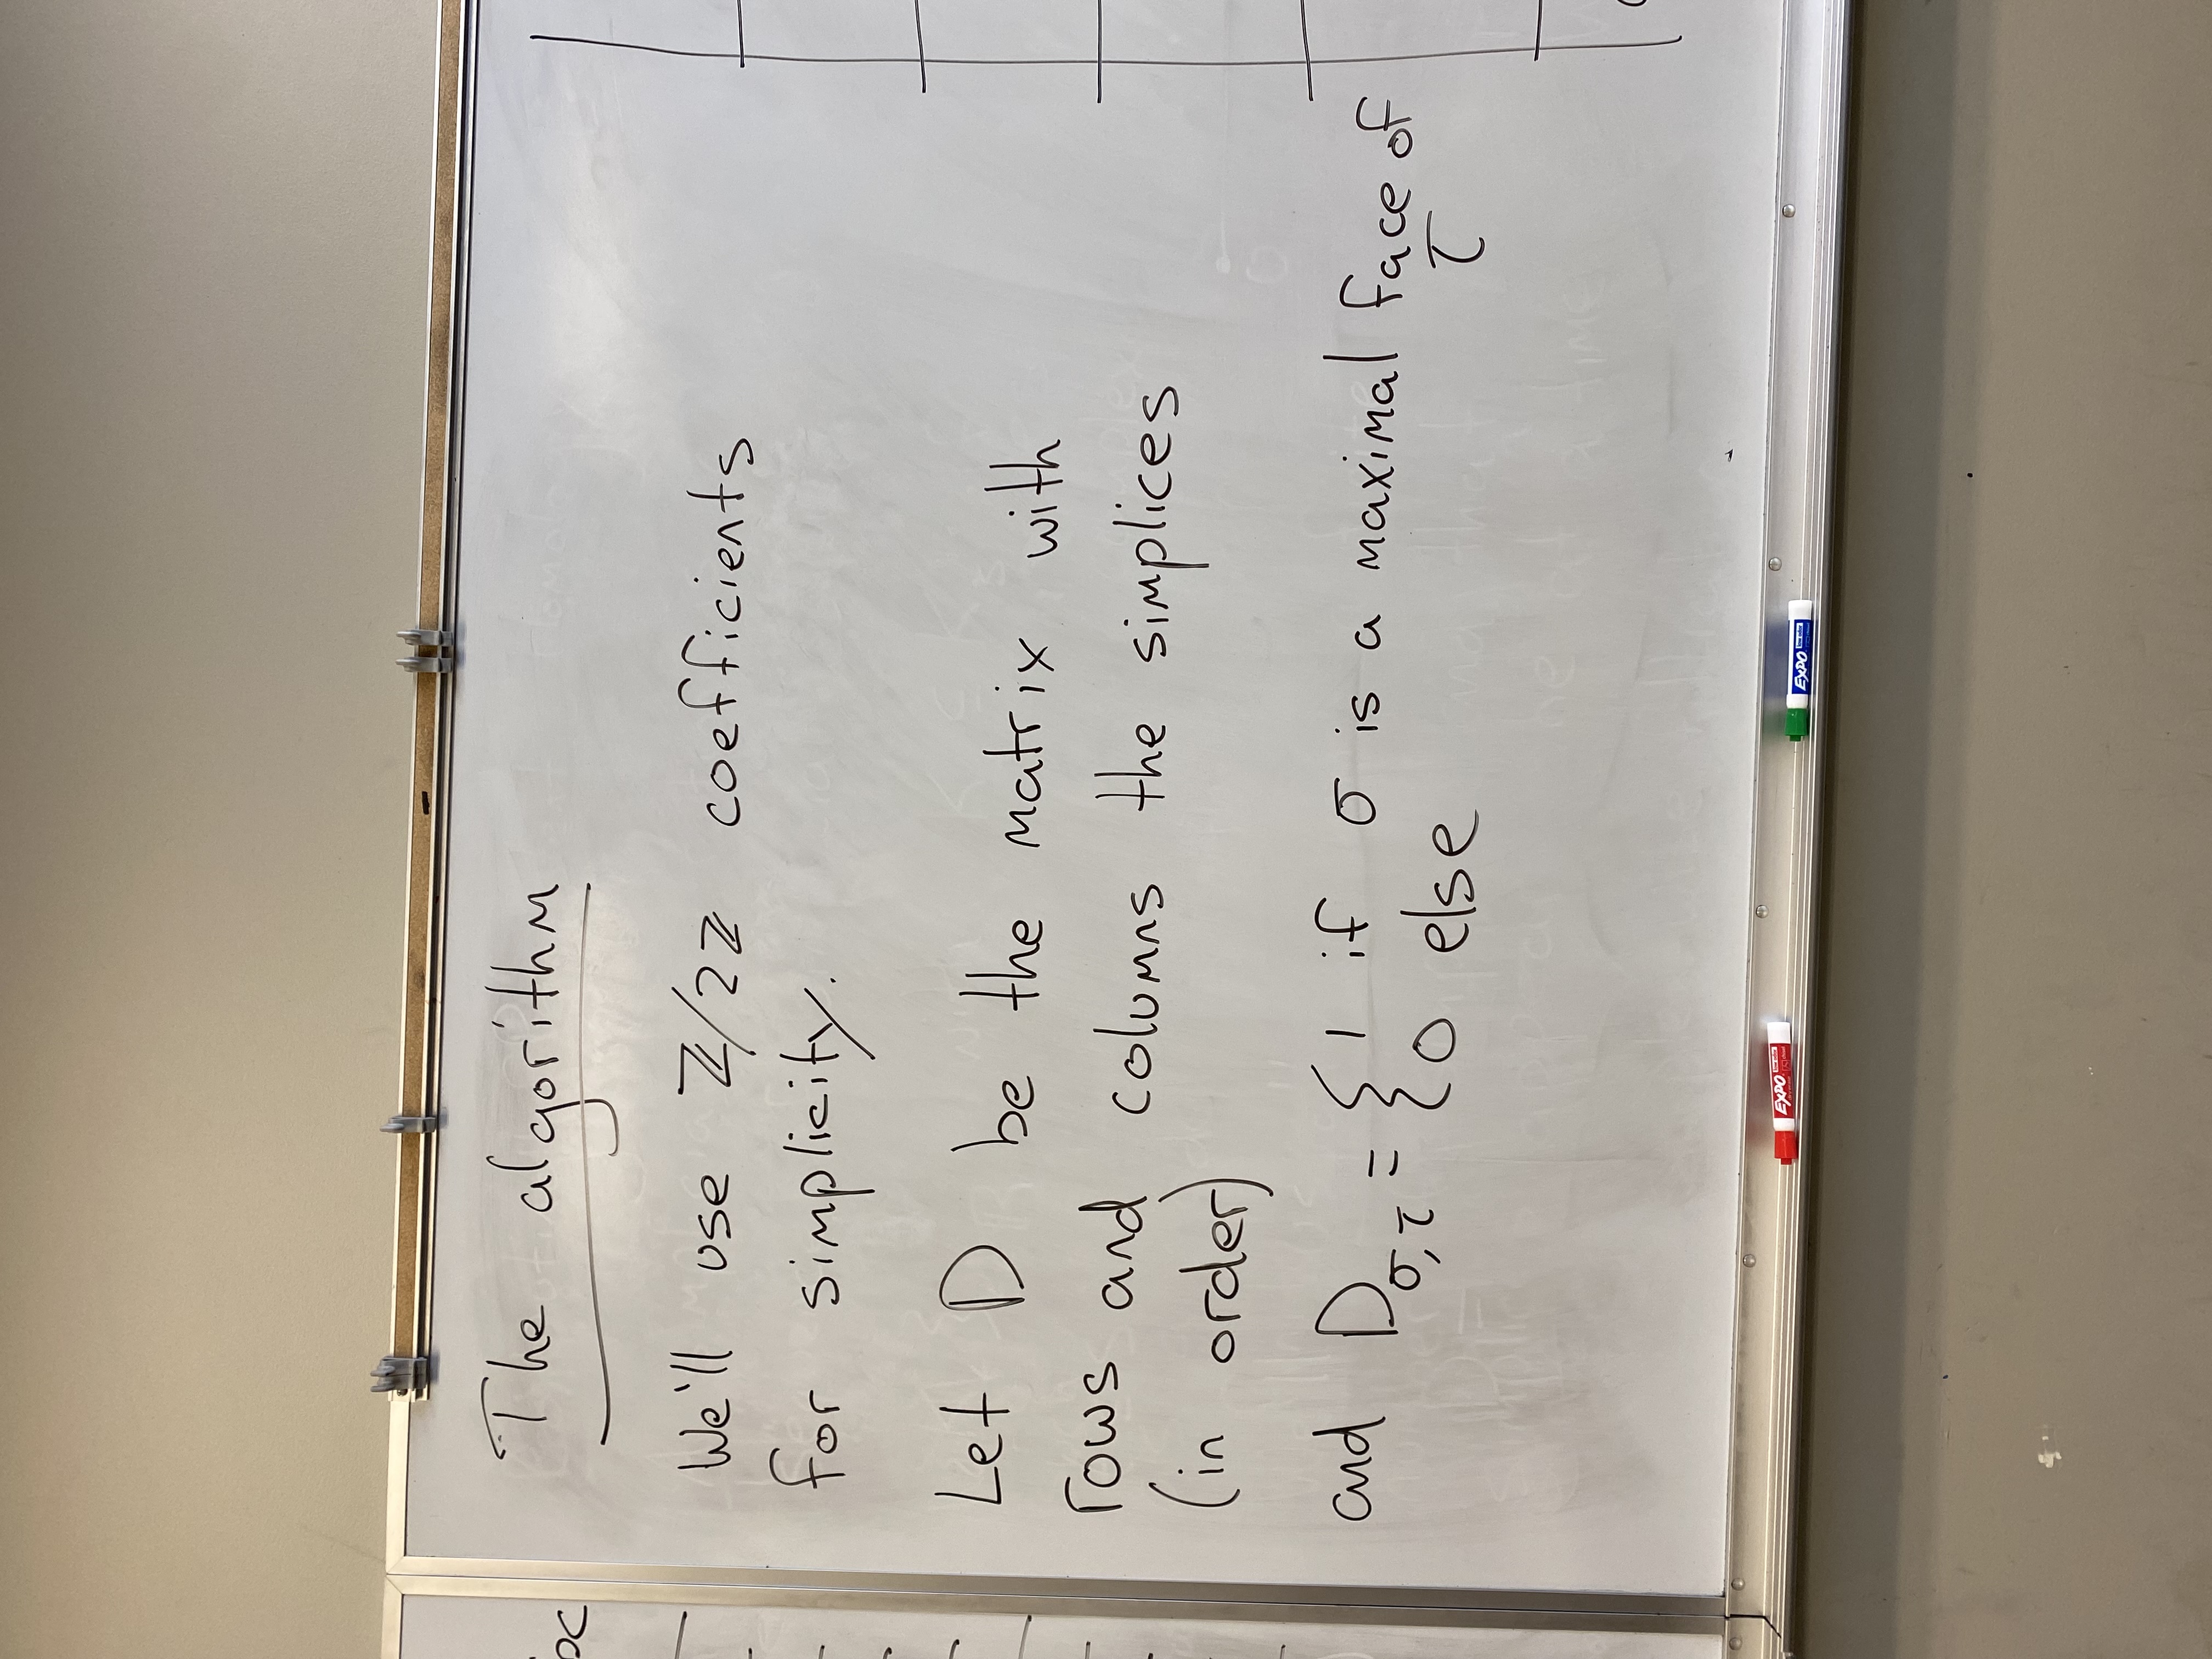 The algorithm
We'll use ℤ/2ℤ coefficients
for simplicity.
Let D be the matrix with
rows and columns the simplices
(in order)
and D_{σ,τ} = { 1 if σ is a maximal face of τ
0 else
EXPO
EXPO